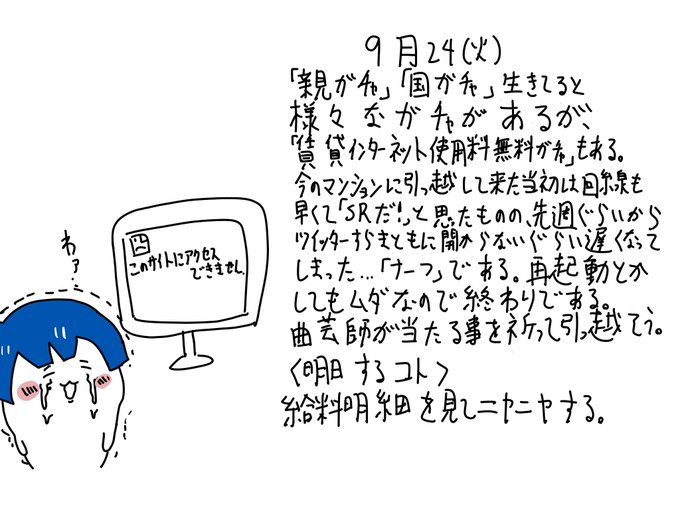 9月24(火)
「親ガチャ」「国ガチャ」生きてると
様々なガチャがあるが、
「賃貸インターネット使用料無料ガチャ」もある。
今のマンションに引っ越して来た当初は回線も
早くて「SRだ!」と思たものの、先週ぐらいから
ツイッターすらまともに開からないぐらい遅くなって
しまった…「ナーフ」である。再起動とか
してもムダなので終わりである。
曲芸師が当たる事を祈って引っ越そう。
〈明日するコト〉
給料明細を見てニヤニヤする。
このサイトにアクセス
できません
わァ…